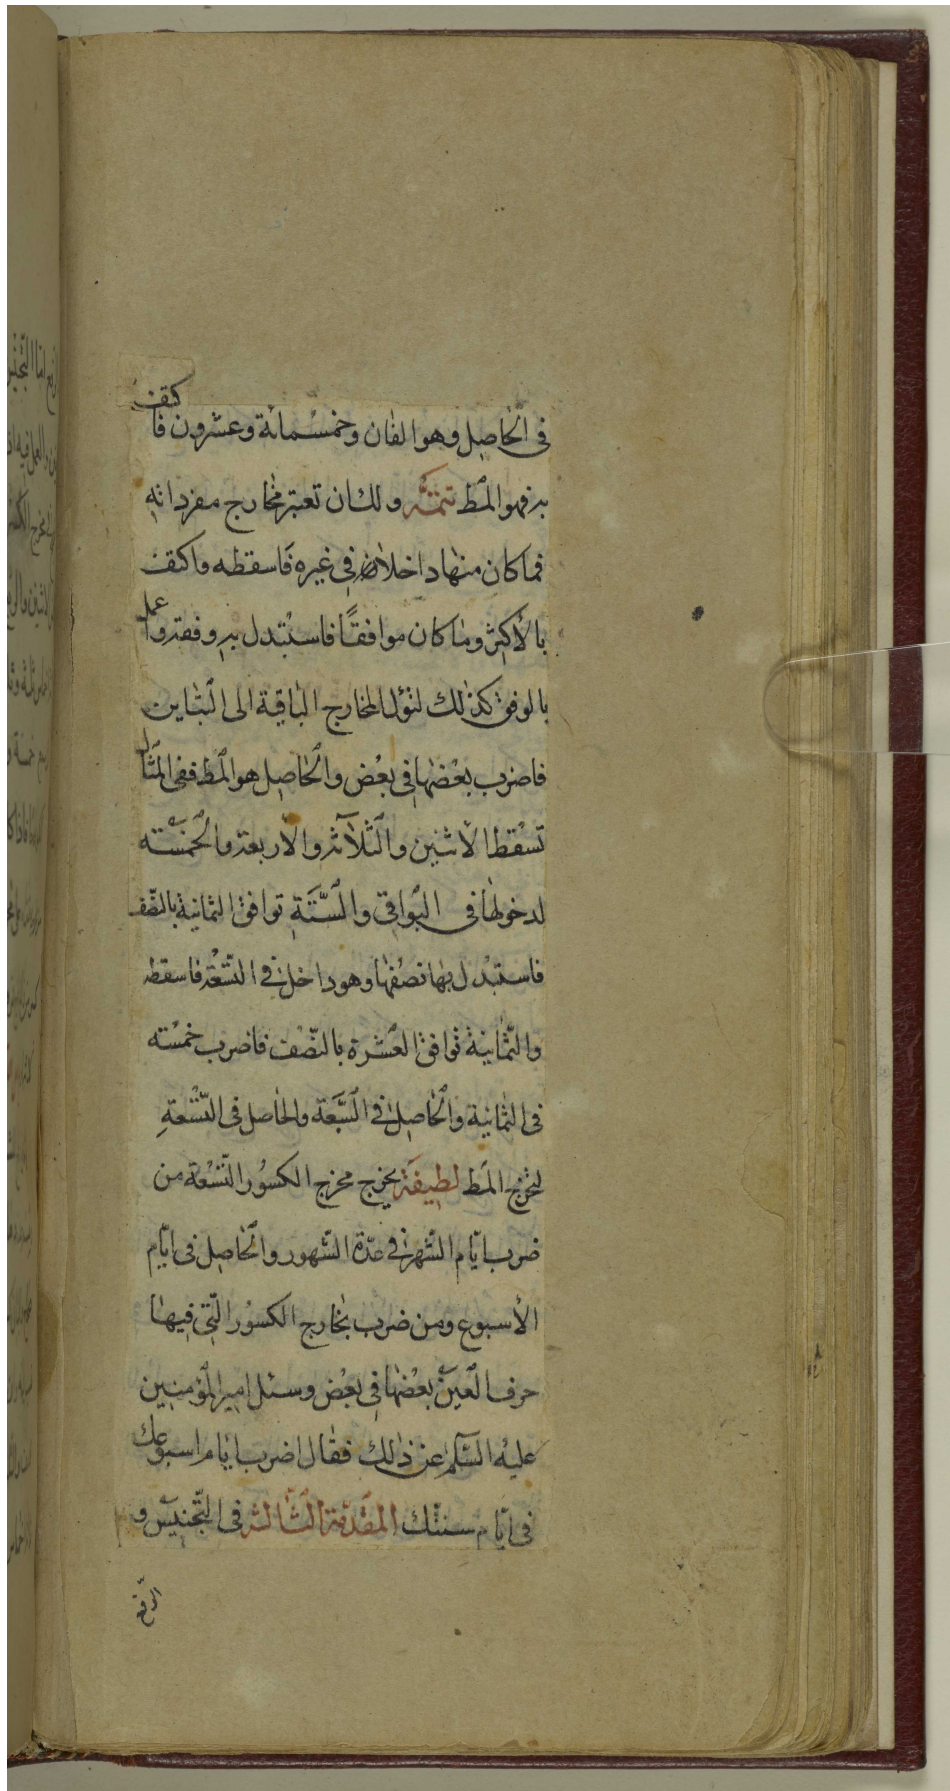 في الحاصل وهو الفان وخمسمائة وعشرون فاكتف
به فهو المط تتمة ولك ان تعتبر مخارج مفرداته
فما كان منها داخلا في غيره فاسقطه واكتف
بالأكثر وما كان موافقًا فاستبدل به وفقه واعمل
بالوفق كذلك لتؤل المخارج الباقية الى التباين
فاضرب بعضها في بعض والحاصل هو المط ففي المثال
تسقط الاثنين والثلاثة والاربعة والخمسة
لدخولها في البواقي والستة توافق الثمانية بالنصف
فاستبدل بها نصفها وهو داخل في التسعة فاسقطه
والثمانية توافق العشرة بالنصف فاضرب خمسته
في الثمانية والحاصل في السبعة والحاصل في التسعة
لتخرج المط لطيفة يخرج مخرج الكسور التسعة من
ضرب ايّام الشهر في عدّة الشهور والحاصل في ايّام
الأسبوع ومن ضرب مخارج الكسور الّتي فيها
حرف العين بعضها في بعض وسئل امير المؤمنين
عليه السلام عن ذلك فقال اضرب ايام اسبوعك
في ايّام سنتك المقدمة الثالثة في التجنيس و
الرفع